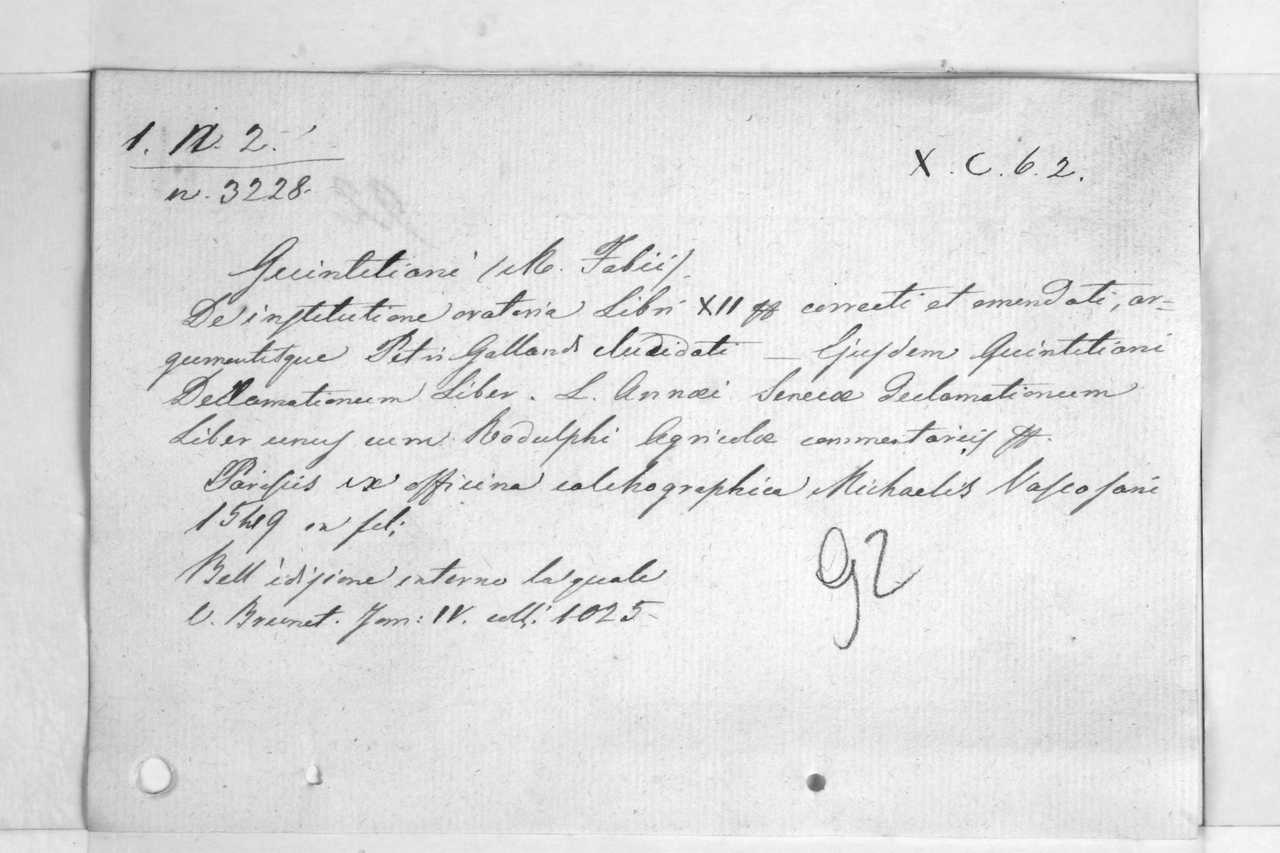 1. N. 2.
X. C. 6. 2.
n. 3228.
Quintiliani (M. Fabii).
De institutione oratoria Libri XII correcti et emendati, ar=
gumentisque Petri Gallandi elucidati — Ejusdem Quintiliani
Declamationum Liber. L. Annæi Senecæ Declamationum
Liber unus cum Rodulphi Agricolæ commentariis ff.
Parisiis ex officina calchographica Michaelis Vascosani
1549 in fol:
Bell' edizione intorno la quale
V. Brunet. Tom: IV. coll: 1025
92